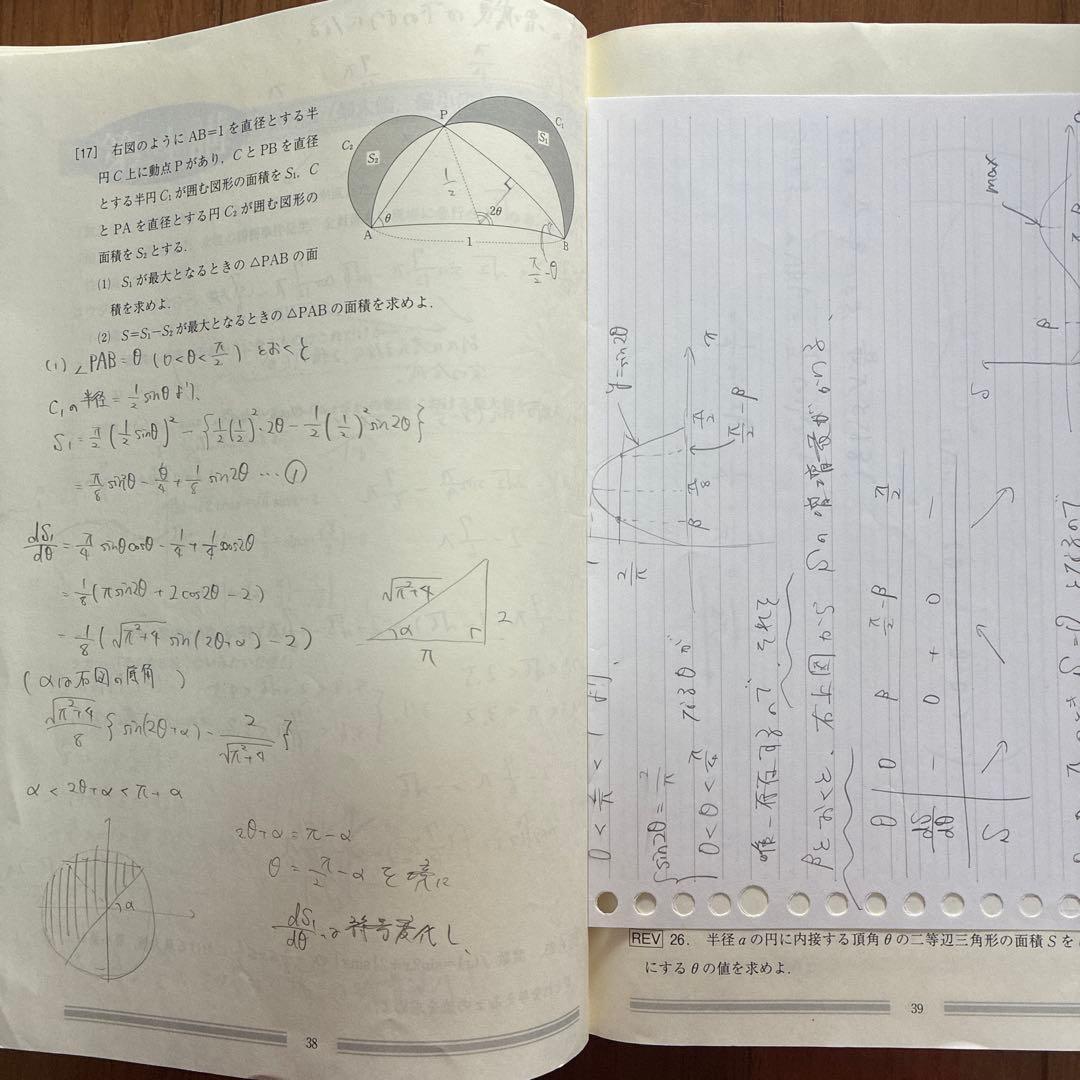 [17] 右図のように AB=1 を直径とする半
円 C 上に動点 P があり，C と PB を直径
とする半円 C₁ が囲む図形の面積を S₁，C
と PA を直径とする円 C₂ が囲む図形の
面積を S₂ とする．
(1) S₁ が最大となるときの △PAB の面
積を求めよ．
(2) S=S₁−S₂ が最大となるときの △PAB の面積を求めよ．
P
C₁
C₂
S₁
S₂
1/2
θ
2θ
A
1
B
π/2−θ
(1) ∠PAB = θ (0<θ<π/2) とおくと
C₁の半径 = 1/2 sinθ より、
S₁ = π/2 (1/2 sinθ)² − {1/2 (1/2)²・2θ − 1/2 (1/2)² sin2θ}
= π/8 sin²θ − θ/4 + 1/8 sin2θ … ①
dS₁/dθ = π/4 sinθcosθ − 1/4 + 1/4 cos2θ
= 1/8 (πsin2θ + 2cos2θ − 2)
= 1/8 (√π²+4 sin(2θ+α) − 2)
√π²+4
α
2
π
(αは右図の角)
√π²+4/8 { sin(2θ+α) − 2/√π²+4 }
α < 2θ+α < π+α
α
2θ+α = π−α
θ = π/2 − α を境に
dS₁/dθ の符号変化し、
38
max
S
β
y=sin2θ
π
1
2/π
β
π/8
π/2
π/2−β
0 < 2/π < 1 より、
{ sin2θ = 2/π
0<θ<π/4 なるθが
唯一存在するので、それを
βとおくと、
θ 0 β π/2−β π/2
dS/dθ − 0 + 0 −
S ↘ ↗ ↘
REV 26. 半径 a の円に内接する頂角 θ の二等辺三角形の面積 S を
にする θ の値を求めよ．
39